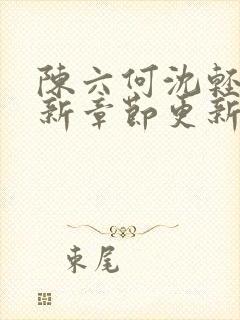 陳六何沈輕
新章節更新
束尾